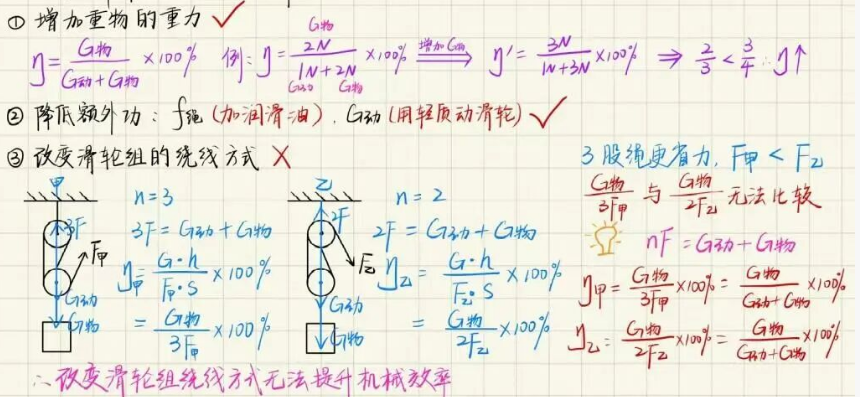 ① 增加重物的重力 ✓
η = G物/(G动+G物) ×100% 例: η = 2N/(1N+2N) ×100% 增加G物 ⇒ η' = 3N/(1N+3N) ×100% ⇒ 2/3 < 3/4 ∴ η↑
G物
G动 G物
② 降低额外功: f绳 (加润滑油). G动 (用轻质动滑轮) ✓
③ 改变滑轮组的绕线方式 ✗
甲
3F
F甲
G动
G物
n=3
3F = G动+G物
η甲 = G·h/F甲·S ×100%
= G物/3F甲 ×100%
乙
2F
F乙
G动
G物
n=2
2F = G动+G物
η乙 = G·h/F乙·S ×100%
= G物/2F乙 ×100%
3股绳更省力, F甲 < F乙
G物/3F甲 与 G物/2F乙 无法比较
nF = G动+G物
η甲 = G物/3F甲 ×100% = G物/(G动+G物) ×100%
η乙 = G物/2F乙 ×100% = G物/(G动+G物) ×100%
∴ 改变滑轮组绕线方式无法提升机械效率